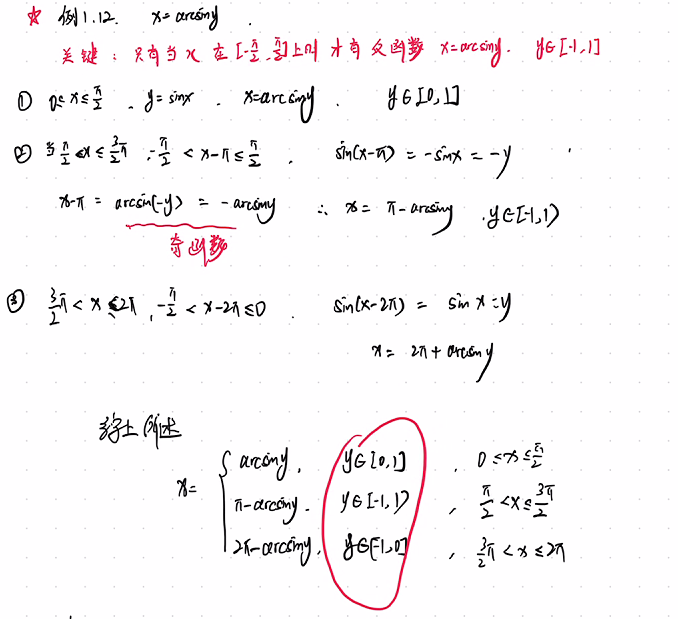 ☆ 例1.12. x=arcsiny.
关键:只有当x在[-π/2,π/2]上时才有反函数 x=arcsiny. y∈[-1,1]
① 0≤x≤π/2. y=sinx. x=arcsiny. y∈[0,1]
② 当π/2<x≤3/2π, -π/2<x-π≤π/2. sin(x-π)=-sinx=-y
x-π=arcsin(-y)=-arcsiny ∴ x=π-arcsiny. y∈[-1,1)
奇函数
③ 3/2π<x≤2π, -π/2<x-2π≤0. sin(x-2π)=sinx=y
x=2π+arcsiny
综上所述
arcsiny, y∈[0,1], 0≤x≤π/2
x={ π-arcsiny. y∈[-1,1), π/2<x≤3π/2
2π-arcsiny, y∈[-1,0], 3/2π<x≤2π